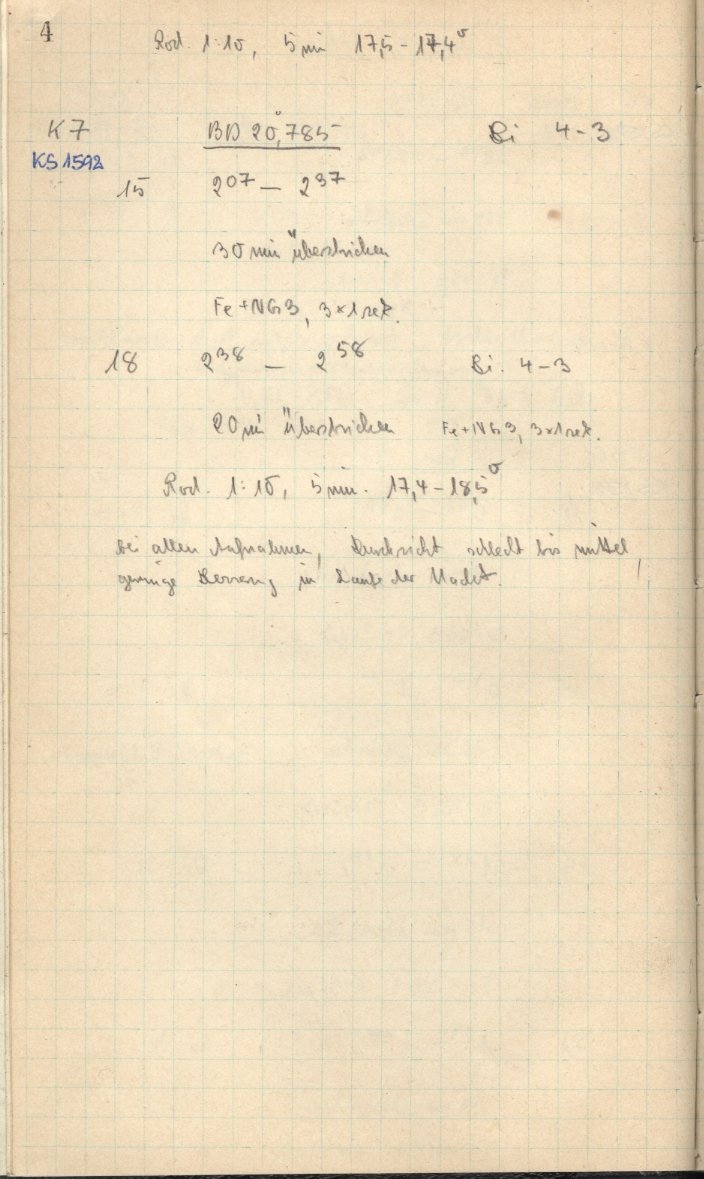 4
Rod. 1:10, 5 min 17,5-17,4°
K7 BD 20°,785 Bi 4-3
KS1592
15 2 07 — 2 37
30 min überstrichen
Fe+NG3, 3×1 sek.
18 2 38 — 2 58 Bi. 4-3
20 min überstrichen Fe+NG3, 3×1 sek.
Rod. 1:10, 5 min. 17,4-18,5°
bei allen Aufnahmen, Durchsicht schlecht bis mittel,
geringe Besserung im Laufe der Nacht.